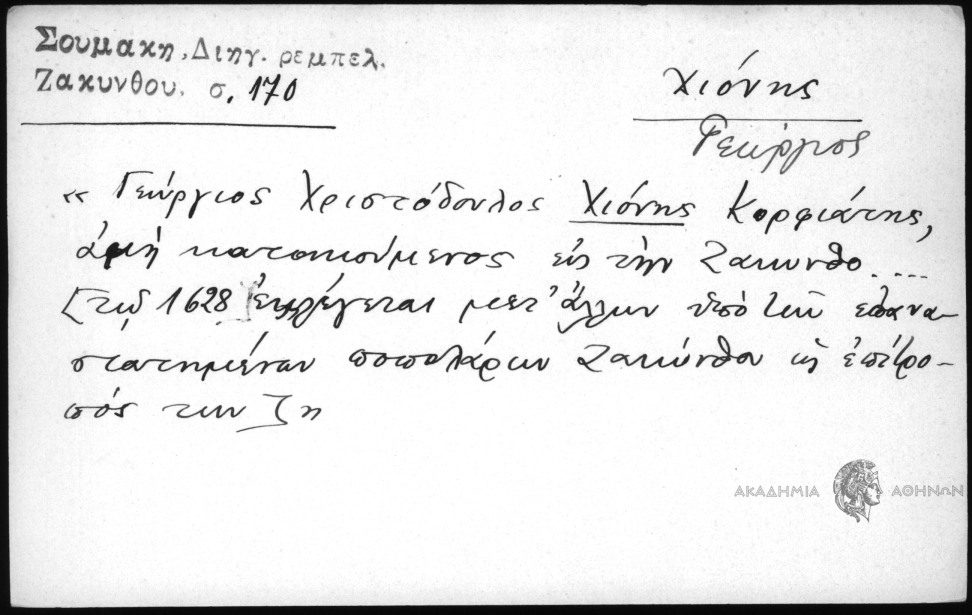 Σουμακη, Διηγ. ρεμπελ.
Ζακυνθου. σ. 170
Χιόνης
Γεώργιος
« Γεώργιος Χριστόδουλος Χιόνης Κορφιάτης,
ἀμή κατοικούμενος εἰς τήν Ζάκυνθο....
[τῷ 1628 ἐκλέγεται μετ' ἄλλων ὑπό τῶν ἐπανα-
στατημένων ποπολάρων Ζακύνθου ὡς ἐπίτρο-
πός των
ΑΚΑΔΗΜΙΑ ΑΘΗΝΩΝ